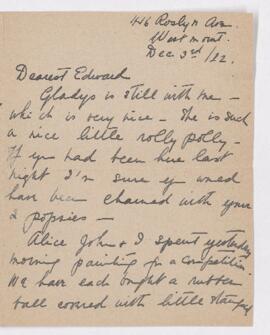 416 Roslyn Ave.
Westmount.
Dec 3rd/12.
Dearest Edward
Gladys is still with me –
which is very nice – She is such
a nice little rolly polly –
If you had been here last
night I'm sure you would
have been charmed with your
2 popsies –
Alice John & I spent yesterday
morning painting for a competition
We have each bought a rubber
ball covered with little